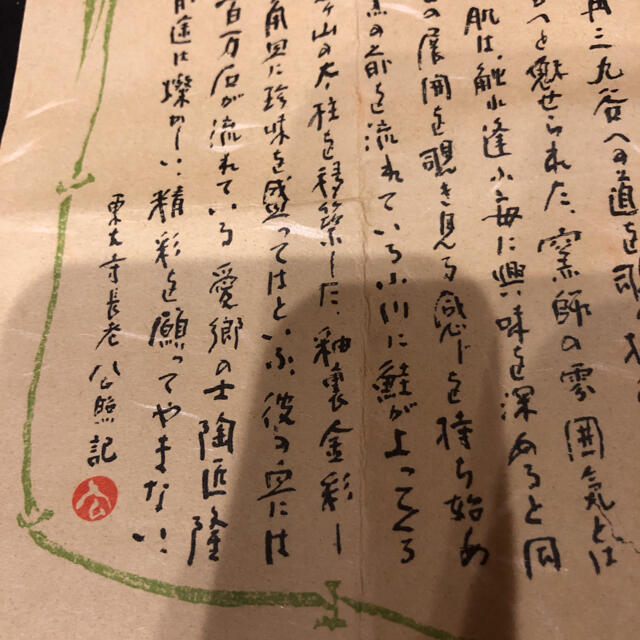 再三九谷への道を
へと魅せられた、窯師の雰囲気とは
肌は、触れ逢ふ毎に興味を深めると同
の展開を覗き見る感じを持ち始め
の前を流れている小川に鮭が上ってくる
山の大柱を移築した、釉裏金彩ー
角皿に珍味を盛ってはといふ、彼の血には
百万石が流れている 愛郷の士 陶匠 隆
前途は燦かしい、精彩を願ってやまない
東大寺長老 公照記
公